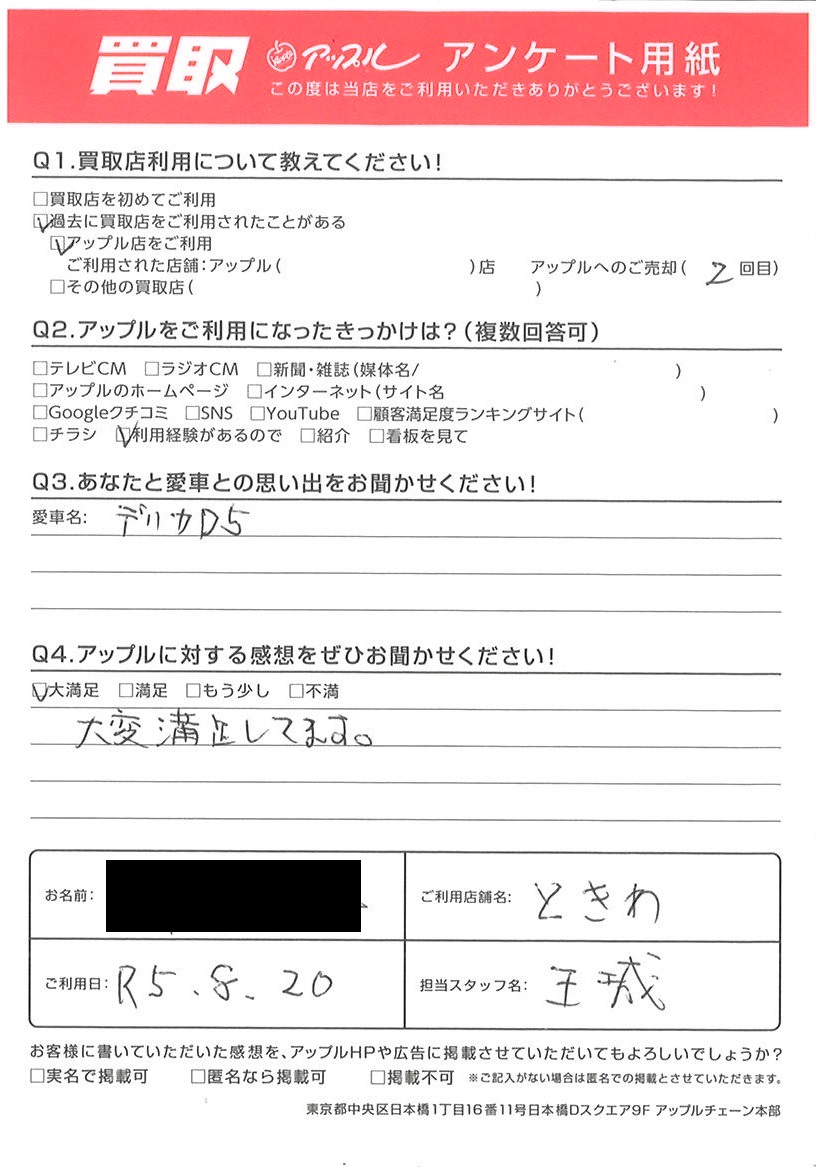 買取 アップル アンケート用紙
この度は当店をご利用いただきありがとうございます!
Q1.買取店利用について教えてください!
□買取店を初めてご利用
☑過去に買取店をご利用されたことがある
☑アップル店をご利用
ご利用された店舗:アップル( )店 アップルへのご売却( 2 回目)
□その他の買取店( )
Q2.アップルをご利用になったきっかけは?(複数回答可)
□テレビCM □ラジオCM □新聞・雑誌(媒体名/ )
□アップルのホームページ □インターネット(サイト名 )
□Googleクチコミ □SNS □YouTube □顧客満足度ランキングサイト( )
□チラシ ☑利用経験があるので □紹介 □看板を見て
Q3.あなたと愛車との思い出をお聞かせください!
愛車名: デリカD5
Q4.アップルに対する感想をぜひお聞かせください!
☑大満足 □満足 □もう少し □不満
大変満足してます。
お名前: ご利用店舗名: ときわ
ご利用日: R5.8.20 担当スタッフ名: 王
お客様に書いていただいた感想を、アップルHPや広告に掲載させていただいてもよろしいでしょうか?
□実名で掲載可 □匿名なら掲載可 □掲載不可 ※ご記入がない場合は匿名での掲載とさせていただきます。
東京都中央区日本橋1丁目16番11号日本橋Dスクエア9F アップルチェーン本部